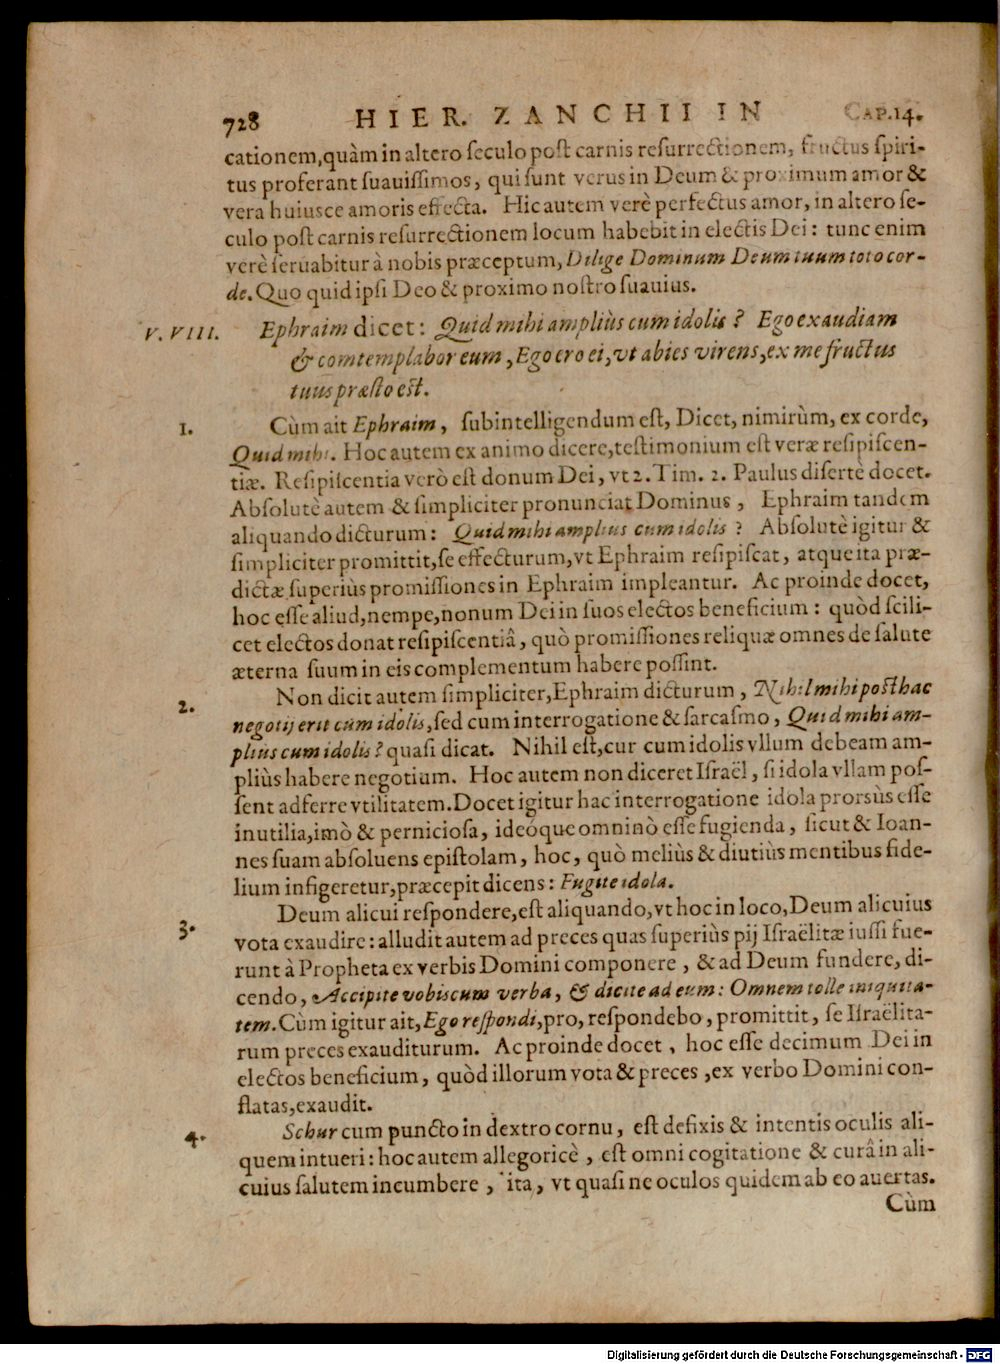 728 HIER. ZANCHII IN CAP.14.
cationem,quàm in altero ſeculo poſt carnis reſurrectionem, fructus ſpiri-
tus proferant ſuauiſſimos, qui ſunt verus in Deum & proximum amor &
vera huiusce amoris effecta. Hic autem verè perfectus amor, in altero ſe-
culo poſt carnis reſurrectionem locum habebit in electis Dei: tunc enim
verè ſeruabitur à nobis præceptum, Dilige Dominum Deum tuum toto cor-
de. Quo quid ipſi Deo & proximo noſtro ſuauius.
V. VIII. Ephraim dicet: Quid mihi ampliùs cum idolis? Ego exaudiam
& comtemplabor eum, Ego ero ei, vt abies virens, ex me fructus
tuus præſto eſt.
1. Cùm ait Ephraim, ſubintelligendum eſt, Dicet, nimirùm, ex corde,
Quid mihi. Hoc autem ex animo dicere, teſtimonium eſt veræ reſipiſcen-
tiæ. Reſipiſcentia verò eſt donum Dei, vt 2. Tim. 2. Paulus diſertè docet.
Absolutè autem & ſimpliciter pronunciat Dominus, Ephraim tandem
aliquando dicturum: Quid mihi amplius cum idolis? Abſolutè igitur &
ſimpliciter promittit, ſe effecturum, vt Ephraim reſipiſcat, atque ita præ-
dictæ ſuperiùs promiſſiones in Ephraim impleantur. Ac proinde docet,
hoc eſſe aliud, nempe, nonum Dei in ſuos electos beneficium: quòd ſcili-
cet electos donat reſipiſcentiâ, quò promiſſiones reliquæ omnes de ſalute
æterna ſuum in eis complementum habere poſſint.
2. Non dicit autem ſimpliciter, Ephraim dicturum, Nihil mihi poſthac
negotij erit cum idolis, ſed cum interrogatione & ſarcaſmo, Quid mihi am-
plius cum idolis? quaſi dicat. Nihil eſt, cur cum idolis vllum debeam am-
pliùs habere negotium. Hoc autem non diceret Iſraël, ſi idola vllam poſ-
ſent adferre vtilitatem. Docet igitur hac interrogatione idola prorsùs eſſe
inutilia, imò & perniciosa, ideóque omninò eſſe fugienda, ſicut & Ioan-
nes ſuam abſoluens epiſtolam, hoc, quò meliùs & diutiùs mentibus fide-
lium infigeretur, præcepit dicens: Fugite idola.
3. Deum alicui reſpondere, eſt aliquando, vt hoc in loco, Deum alicuius
vota exaudire: alludit autem ad preces quas ſuperiùs pij Iſraëlitæ iuſſi fue-
runt à Propheta ex verbis Domini componere, & ad Deum fundere, di-
cendo, Accipite vobiscum verba, & dicite ad eum: Omnem tolle iniquita-
tem. Cùm igitur ait, Ego reſpondi, pro, reſpondebo, promittit, ſe Iſraëlita-
rum preces exauditurum. Ac proinde docet, hoc eſſe decimum Dei in
electos beneficium, quòd illorum vota & preces, ex verbo Domini con-
flatas, exaudit.
4. Schur cum puncto in dextro cornu, eſt defixis & intentis oculis ali-
quem intueri: hoc autem allegoricè, eſt omni cogitatione & curâ in ali-
cuius ſalutem incumbere, ita, vt quaſi ne oculos quidem ab eo auertas.
Cùm
Digitalisierung gefördert durch die Deutsche Forschungsgemeinschaft - DFG